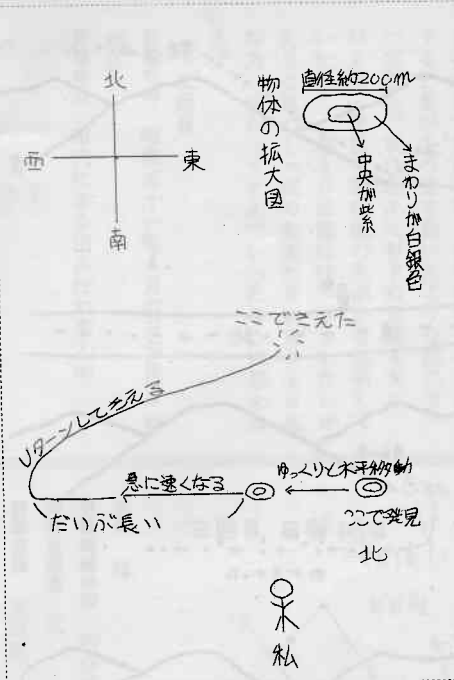 北
西
東
南
物体の拡大図
直径約20cm
中央が紫
まわりが白銀色
ここできえた
Uターンしてきえる
急に速くなる
ゆっくりと水平移動
だいぶ長い
ここで発見
北
私